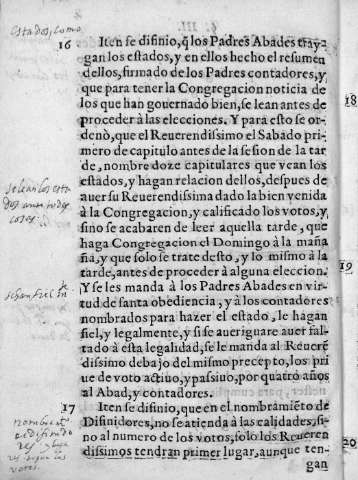 Estados, como
16 Iten se difinio, q̃ los Padres Abades tray-
gan los estados, y en ellos hecho el resumen
dellos, firmado de los Padres contadores, y
que para tener la Congregacion noticia de
los que han gouernado bien, se lean antes de
proceder à las elecciones. Y para esto se or-
denò, que el Reuerendissimo el Sabado pri-
mero de capitulo antes de la sesion de la tar
de, nombre doze capitulares que vean los
estados, y hagan relacion dellos, despues de
auer su Reuerendissima dado la bien venida
à la Congregacion, y calificado los votos, y
sino se acabaren de leer aquella tarde, que
haga Congregacion el Domingo à la maña
ña, y que solo se trate desto, y lo mismo à la
tarde, antes de proceder à alguna eleccion.
Y se les manda à los Padres Abades en vir-
tud de santa obediencia, y à los contadores
nombrados para hazer el estado, le hagan
fiel, y legalmente, y si se aueriguare auer fal-
tado à esta legalidad, se le manda al Reuerẽ
dissimo debajo del mismo precepto, los pri
ue de voto actiuo, y passiuo, por quatro años
al Abad, y contadores.
17 Iten se difinio, que en el nombramiẽto de
Difinidores, no se atienda à las calidades, si-
no al numero de los votos, solo los Reueren
dissimos tendran primer lugar, aunque ten-
gan
se lean los esta
dos antes de
18
19
20